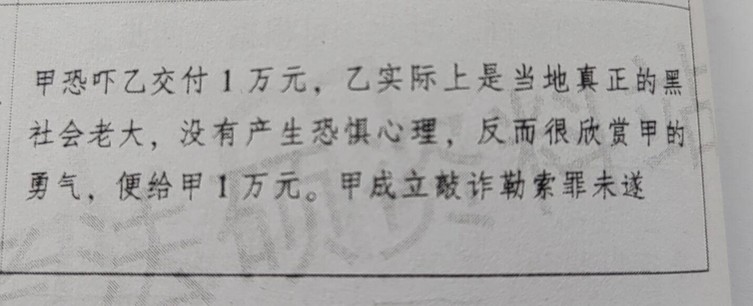 甲恐吓乙交付1万元，乙实际上是当地真正的黑
社会老大，没有产生恐惧心理，反而很欣赏甲的
勇气，便给甲1万元。甲成立敲诈勒索罪未遂